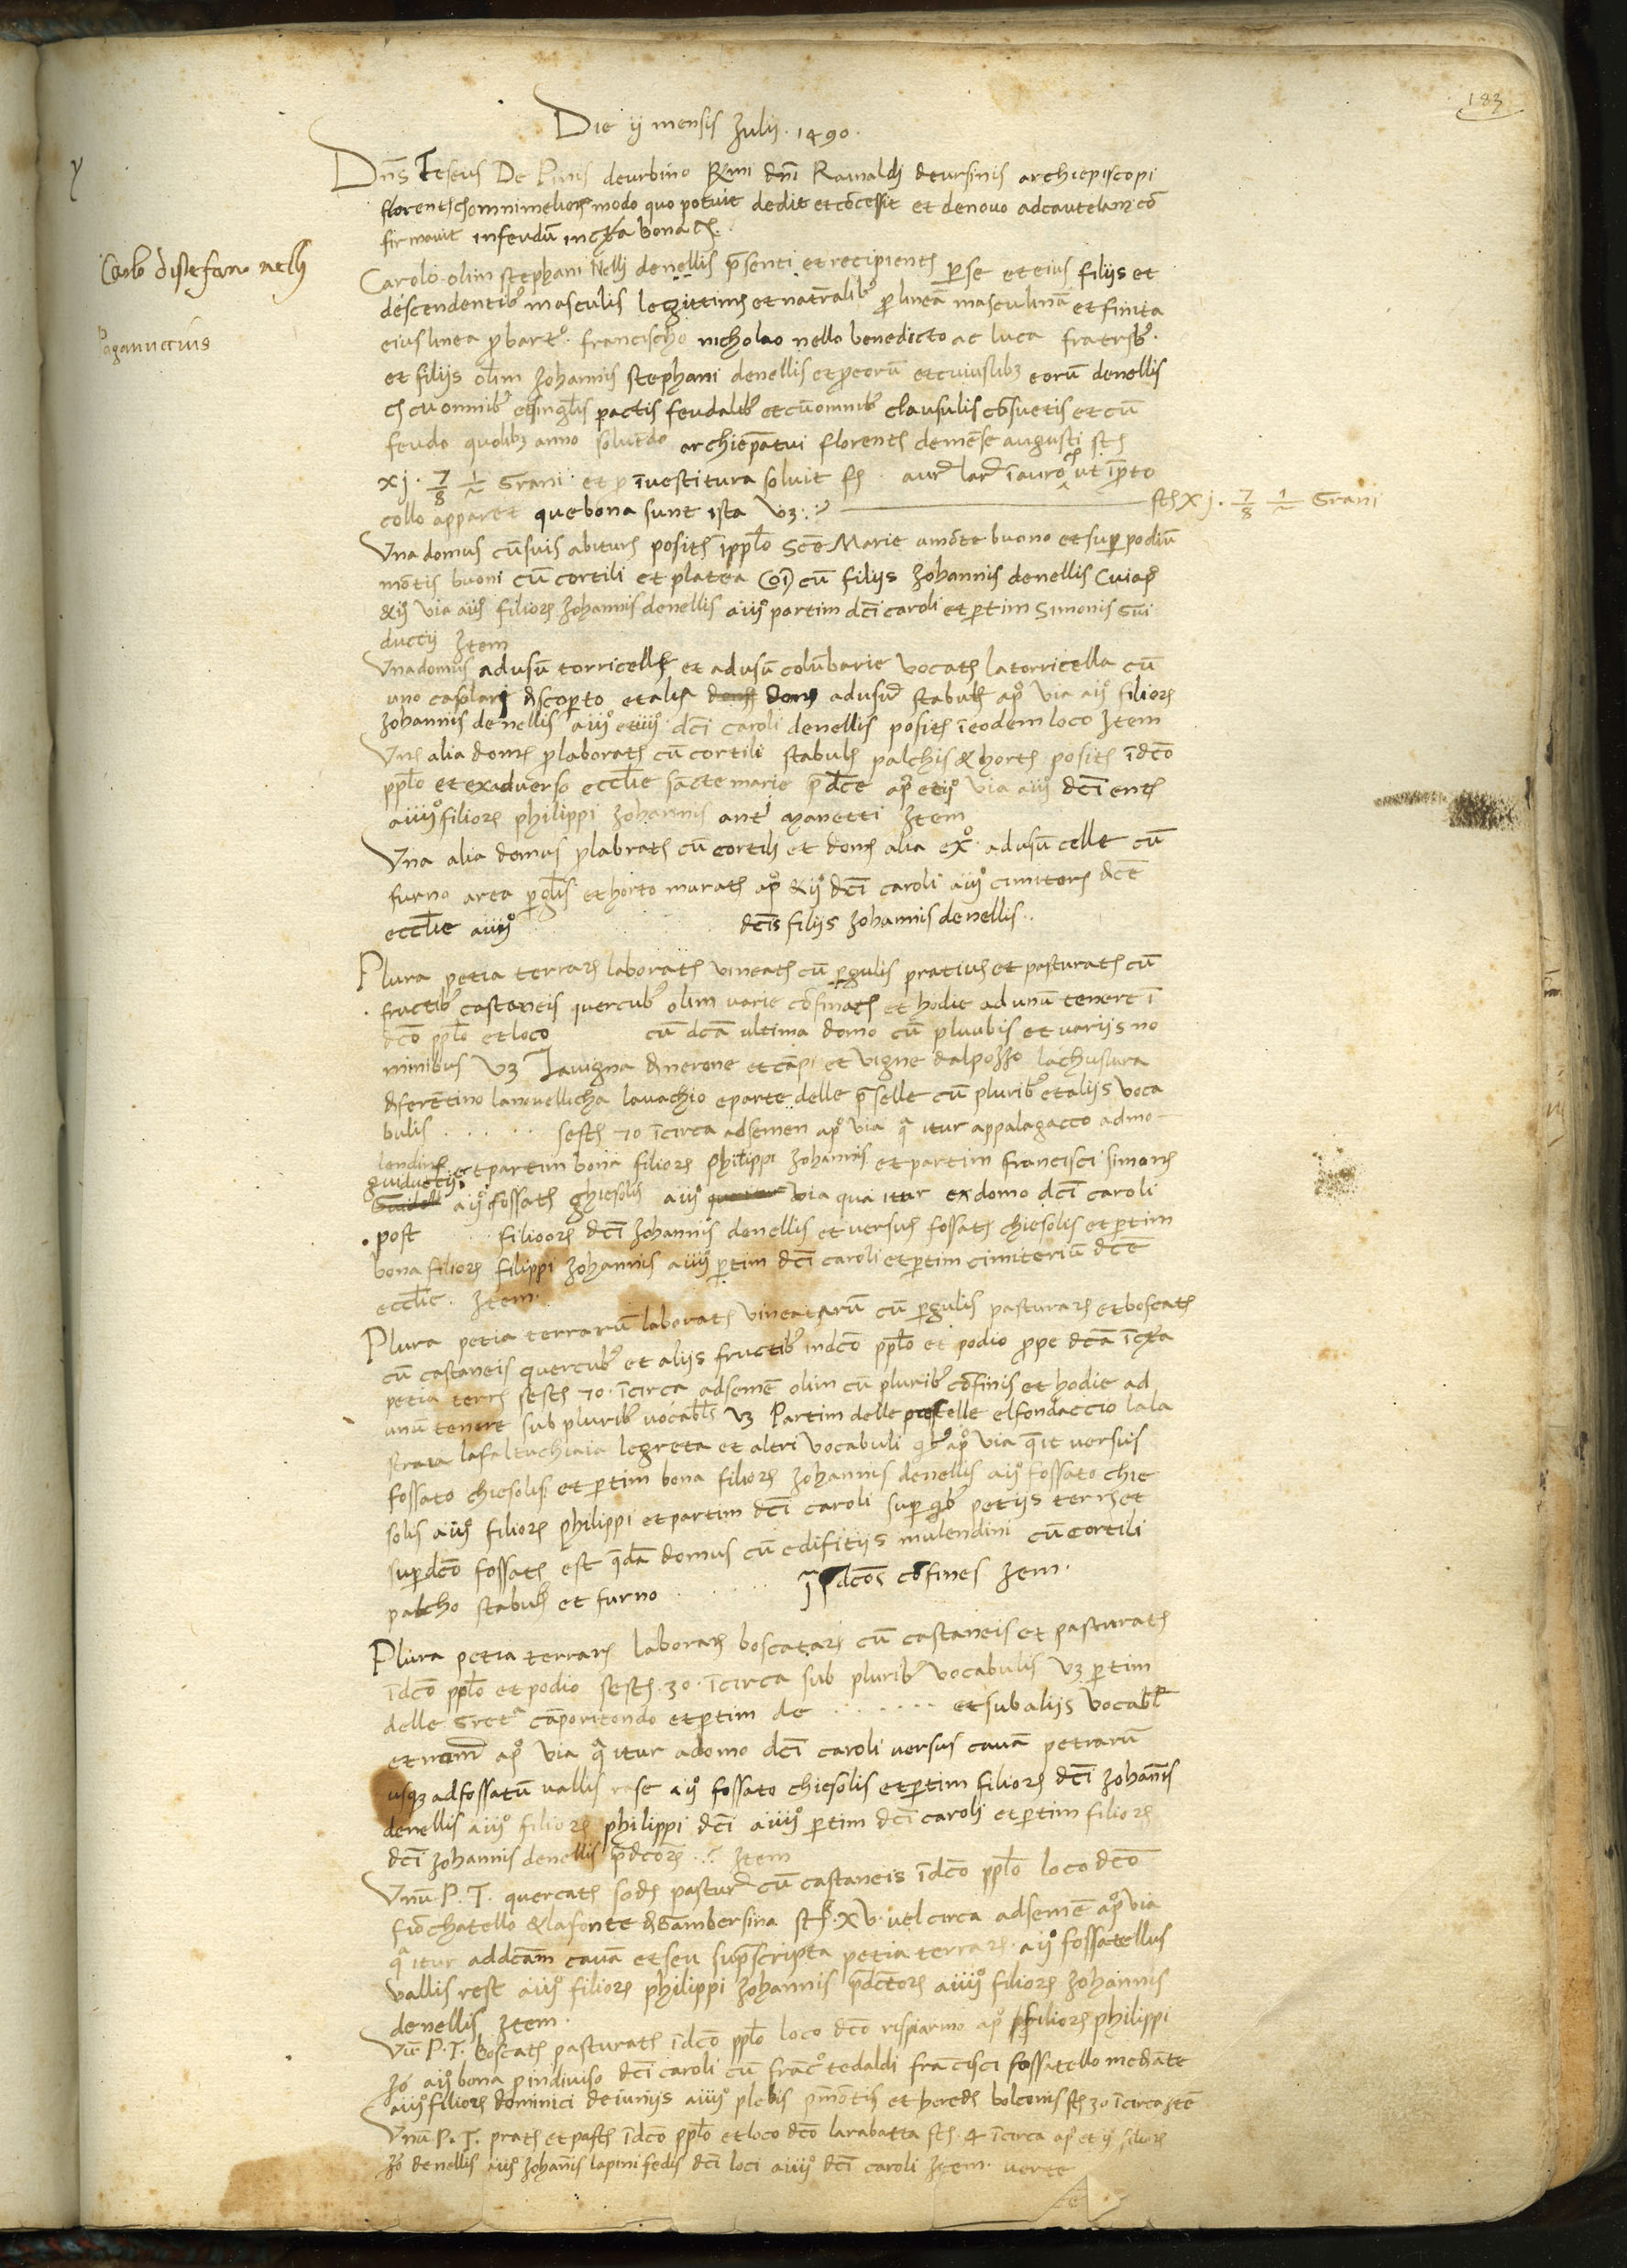 183
Die ij mensis Julij · 1490 ·
Dns Teseus De Pinis deurbino Rmi dni Rainaldj deursinis archiepiscopi
florentj omni meliori modo quo potuit dedit et cōcessit et denovo adcautelam cō
firmavit infeudū incta bona
Carolo distefano nellj
Carolo olim stephani Nellj denellis psenti et recipienti per se et eius filijs et
descendentib masculis legittimis et natralib p lineā masculinā et finita
Paganuccius
eius linea p bart° · francischo nicholao nello benedicto ac luca fratrib ·
et filijs olim Johannis stephani denellis et peorū et cuiuslibz eorū denellis
cū omnib et singlis pactis feudalib et cū omnib clausulis cōsuetis et cū
feudo quolibz anno solvēdo archiepatui florent de mēse augusti st
xj · 7/8 1/~ Grani et p īvestitura solvit fl aur lar ī auro ut ī pto
collo apparet que bona sunt ista vz : st xj · 7/8 1/~ Grani
Una domus cū suis abituris posit ī pplo Scē Marie amōte buono et sup podiū
mōtis buoni cū cortili et platea cōi cū filijs Johannis denellis Cui ap°
&ij via aiij° filior Johannis denellis aiiij° partim dcī caroli et ptim Simonis Gui
duccij Item
Una domus adusū torricelle et adusū colūbarie vocat latorricella cū
uno casolari discopto et alia dom adusū stabuli ap° via aij° filior
Johannis denellis aiij° et iiij° dcī caroli denellis posit ī eodem loco Item
Una alia dom p laborat cū cortili stabul palchis & hort posit ī dcō
pplo et exadverso ecclie sancte marie pdce ap° et ij° via aiij° dcī ent
aiiij° filior philippi Johannis antj manetti Item
Una alia domus p labrat cū cortili et dom alia ex° adusū celle cū
furno area pglis et horto murat ap° &ij° dcī caroli aiij° cimitor dcē
ecclie aiiij° dcis filijs Johannis denellis ··
Plura petia terrar laborat vineat cū pgulis prativis et pasturat cū
fructib castaneis quercub olim varie cōfinat et hodie ad unū tenere ī
dcō pplo et loco cū dcā ultima domo cū pluribis et varijs no
minibus vz Lavigna dinerone et cāpi et vigne dalpozzo lachiusura
diferētino lanovellucha lavachio eparte delle pselle cū plurib et alijs voca
bulis · · · · · sest 70 īcirca adsemen ap° via q itur appalagacco admo
lendin et partim bona filior philippi Johannis et partim francisci simonis
guiductij aij° fossat ghiesolis aiij° via qua itur ex domo dcī caroli
· post filioor dcī Johannis denellis et versus fossat chiesolis et ptim
bona filior filippi Johannis aiiij° ptim dcī caroli et ptim cimiteriū dcē
ecclie · Item ·
Plura petia terrarū laborat vineatarū cū pgulis pasturar et boscat
cū castaneis quercub et alijs fructib indcō pplo et podio ppe dcā īcta
petia terr sest 70 · īcirca adsemē olim cū plurib cōfinis et hodie ad
unū tenere sub plurib vocabls vz Partim delle preselle elfondaccio lala
straia lafaltuchiaia legreta et altri vocabuli ap° via q it versus
fossato chiesolis et ptim bona filior Johannis denellis aij° fossato chie
solis aiij° filior philippi et partim dcī caroli sup qb petijs terr et
sup dcō fossat est qdā domus cū edifitijs mulendini cū cortili
palcho stabul et furno · · · · · dcōs cōfines Item ·
Plura petia terrar laborar boscatar cū castaneis et pasturat
ī dcō pplo et podio sest · 30 · īcirca sub plurib vocabulis vz ptim
delle Gret cāporitondo et ptim de · · · · · · et sub alijs vocabl
et nom ap° via q itur adomo dcī caroli versus cavā petrarū
usqz ad fossatū vallis rase aij° fossato chiesolis et ptim filior dcī Johannis
denellis aiij° filior philippi dcī aiiij° ptim dcī caroli et ptim filior
dcī Johannis denellis pdcōr · Item
Unū · P · T · quercat sod pastur cū castaneis ī dcō pplo loco dcō
fiōchatello &lafonte digāmbersina st · XV · vel circa adsemē ap° via
q itur addcam cavā et seu supscripta petia terrar · aij° fossatellus
vallis rest aiij° filior philippi Johannis pdctor aiiij° filior Johannis
denellis Item ·
Un · P · T · Boscat pasturat ī dcō pplo loco dcō risparmo ap° filior philippi
Jō aij° bona p indiviso dcī caroli cū franc° tedaldi francisci fossatello mediāte
aiij° filior dominici deiunijs aiiij° plebis pmōtis et hered bolconis st 30 īcirca Itē
Unū P · T · prat et past ī dcō pplo et loco dcō larabatta st · 4 īcirca ap° et ij° filior
Jō denellis aiij° Johannis lapini sedis dcī loci aiiij° dcī caroli Item · verte